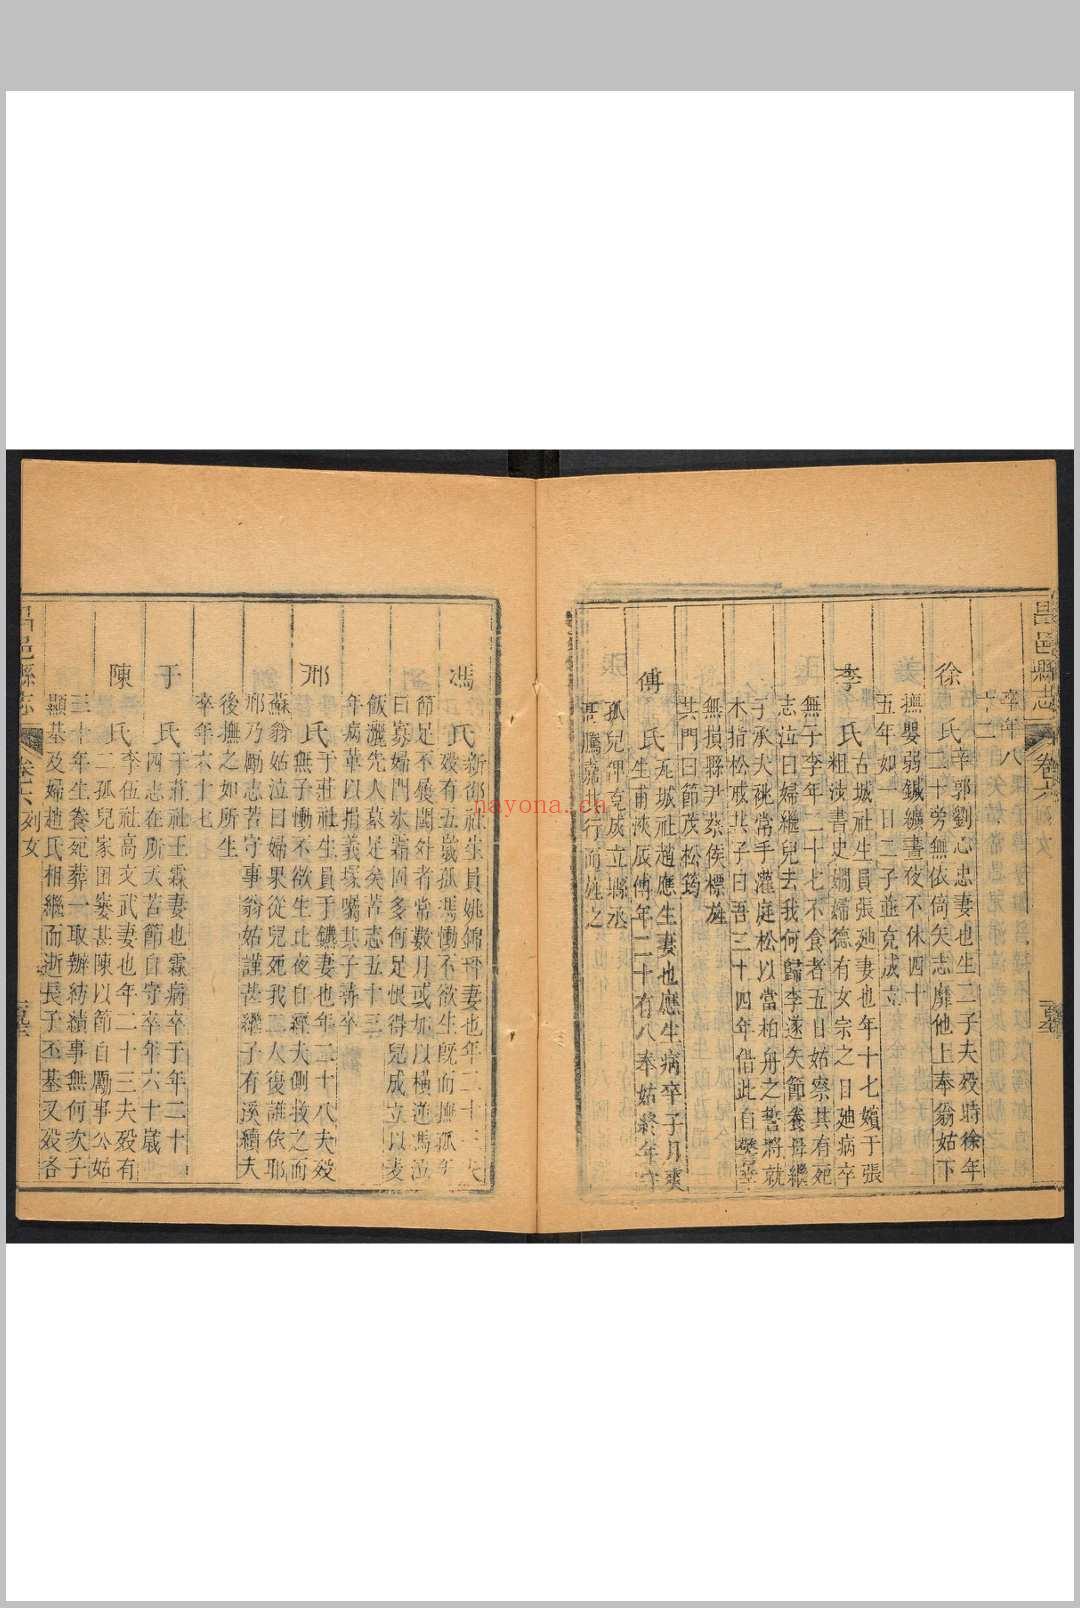 昌邑縣志
卷六
卒年八
十二
徐氏
辛郭劉志忠妻也生二子夫歿時徐年
二十旁無依倚矢志靡他上奉翁姑下
撫嬰弱鍼纑晝夜不休四十
五年如一日二子並克成立
李氏
古城社生員張廸妻也年十七嬪于張
粗涉書史嫻婦德有女宗之目廸病卒
無子李年二十七不食者五日姑察其有死
志泣曰婦繼兒去我何歸李遂矢節養母繼
子承夫祧常手灌庭松以當柏舟之誓將就
木指松戒其子曰吾三十四年借此自
無損縣尹蔡侯標旌
其門曰節茂松筠
傅氏
瓦城社趙應生妻也應生病卒子月奭
生甫浹辰傅年二十有八奉姑終年守
孤兒俾克成立縣丞
馮騰嘉其行而旌之
馮氏
新郃社生員姚錦妻也年二十三夫
歿有五歲孤馮慟不欲生旣而撫孤
節足不展閫外者常數月或加以橫逆馮泣
曰寡婦門氷霜固多何足恨得兒成立以麦
飯灑先人墓足矣苦志五十三
年病革以捐義塚囑其子壽卒
邢氏
于莊社生員于鑛妻也年二十八夫歿
無子慟不欲生比夜自經夫側救之而
蘇翁姑泣曰婦果從兒死我二人復誰依耶
邢乃勵志苦守事翁姑謹甚繼子有溪續夫
後撫之如所生
卒年六十七
于氏
于莊社王霖妻也霖病卒于年二十
四志在所天苦節自守卒年六十歲
陳氏
李伍社高文武妻也年二十三夫歿有
二孤兒家困窶甚陳以節自勵事公姑
三十年生養死葬一取辦紡績事無何次子
顯基及婦趙氏相繼而逝長子丕基又歿各
昌邑縣志
卷六
列女
nayona.cn